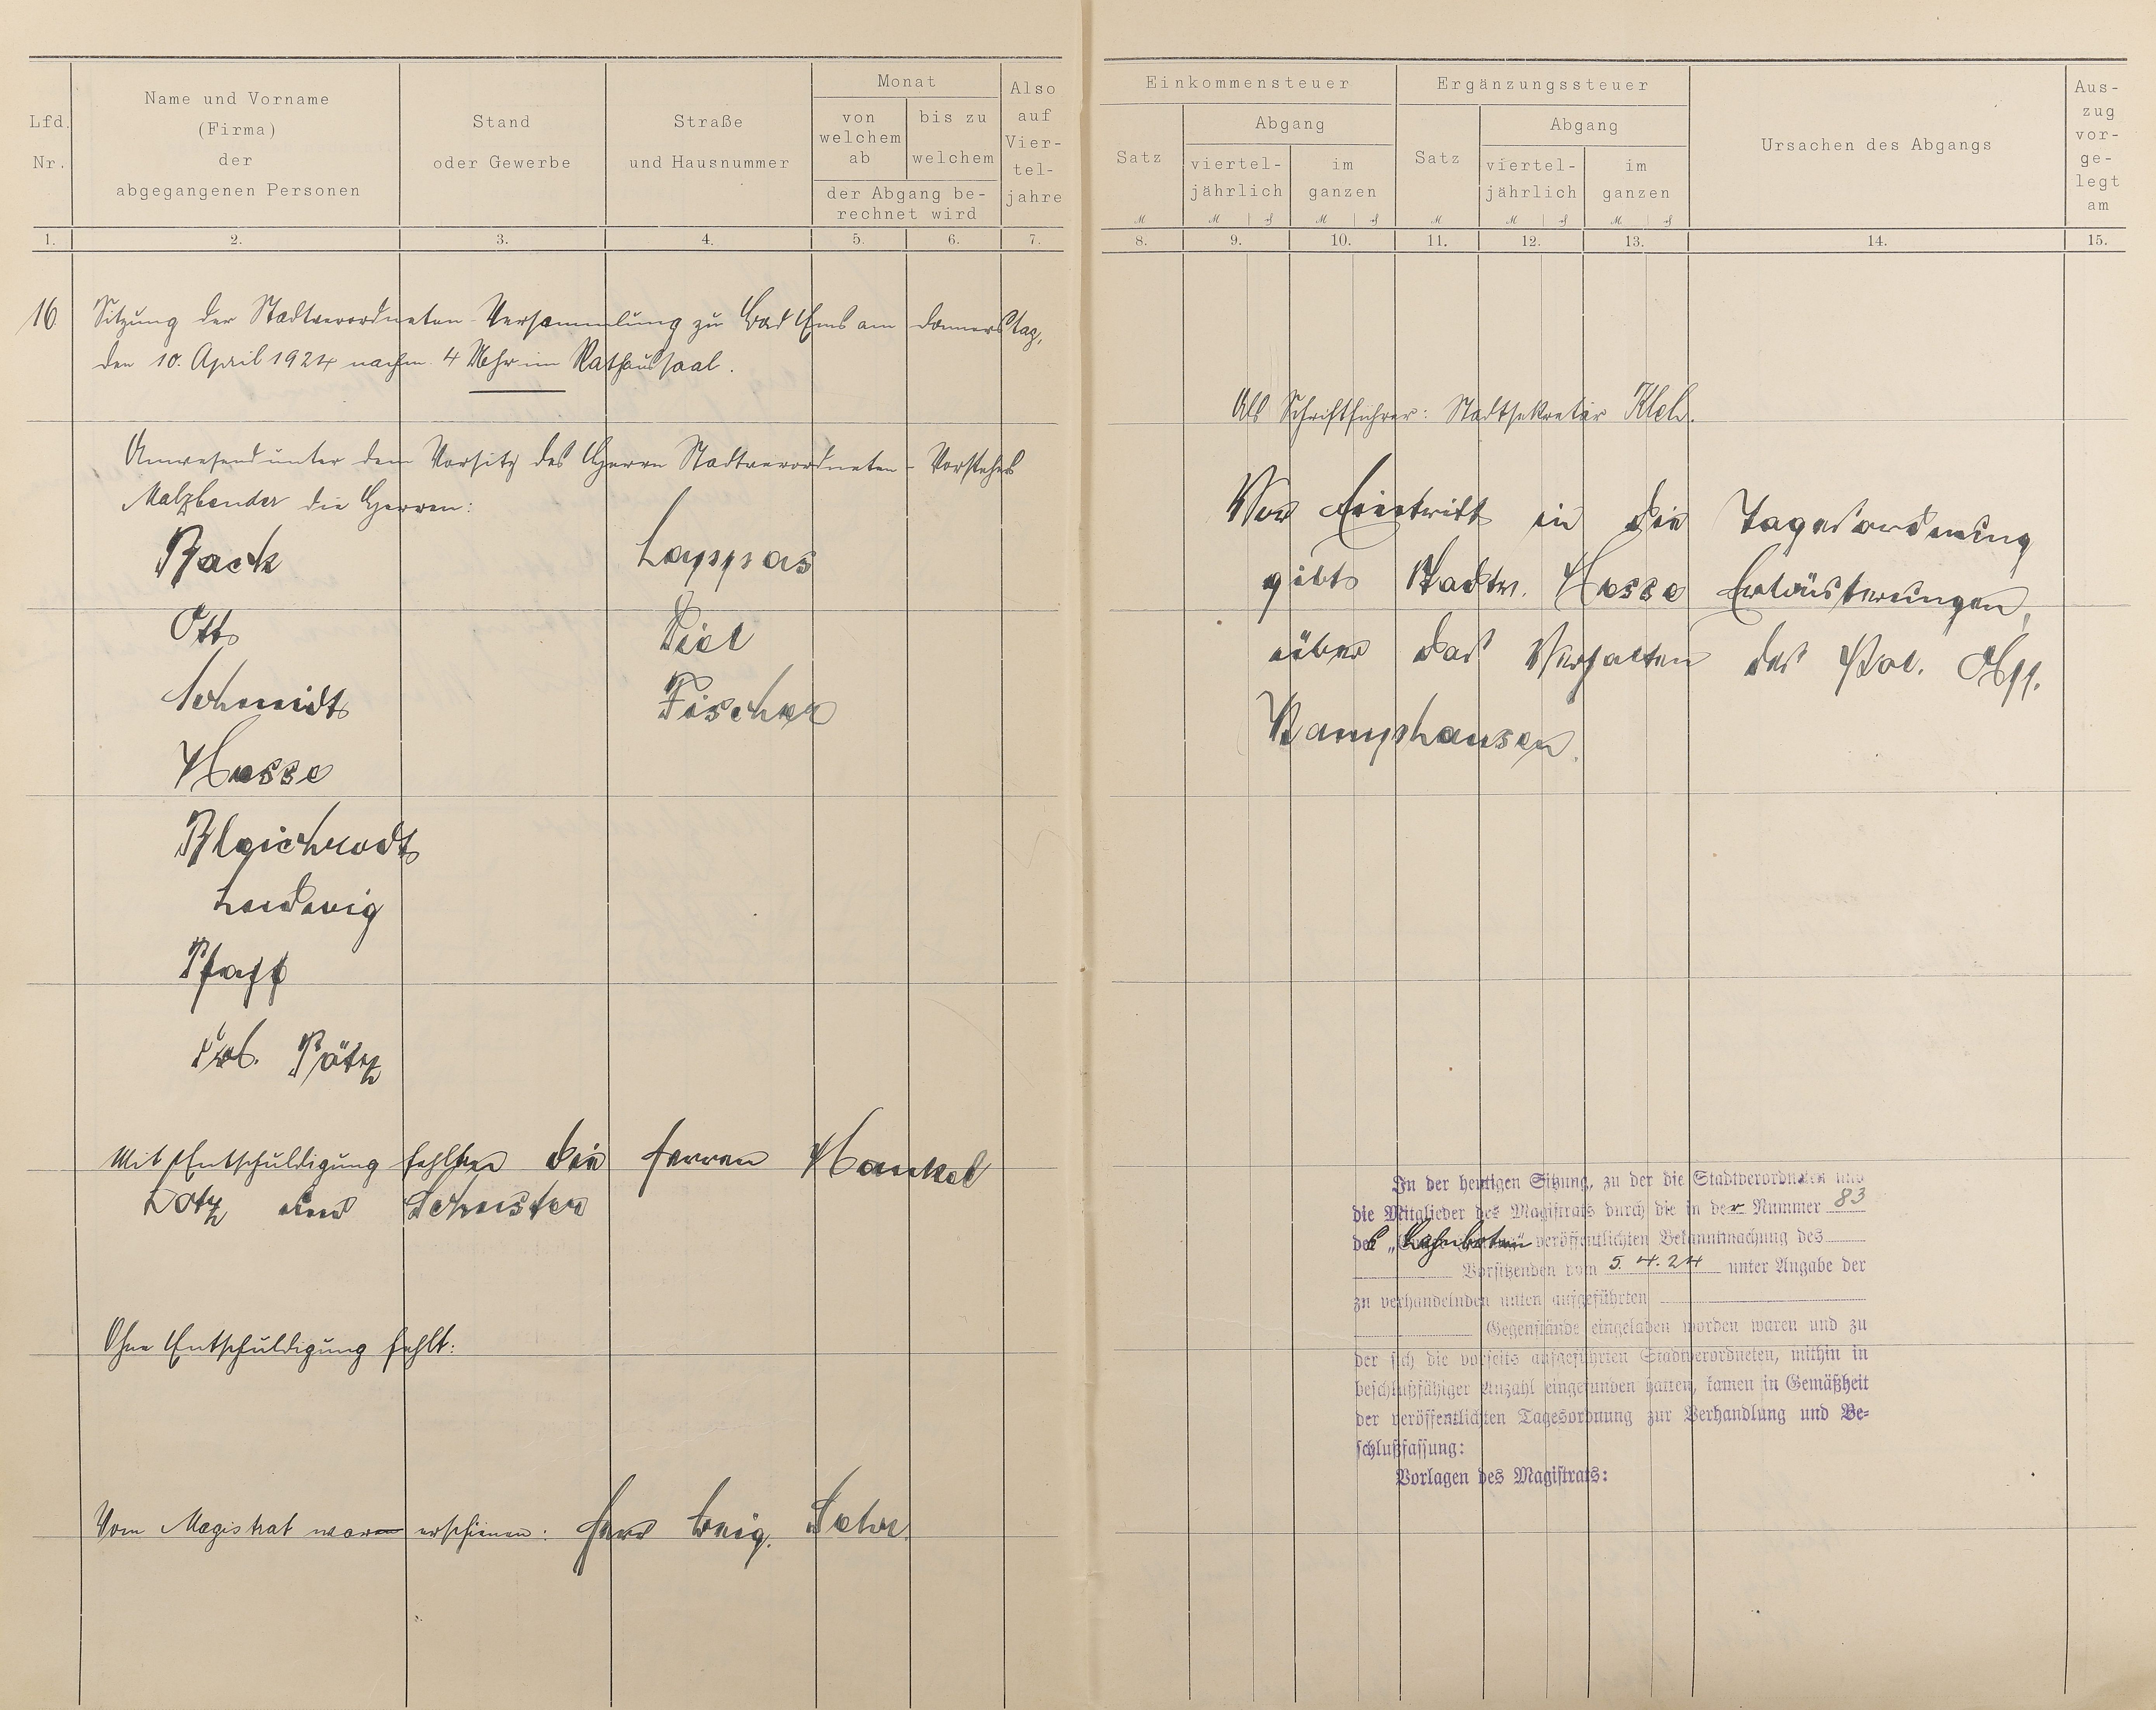 Lfd. Nr.
Name und Vorname
(Firma)
der
abgegangenen Personen
Stand
oder Gewerbe
Straße
und Hausnummer
Monat
von welchem ab
bis zu welchem
der Abgang be-
rechnet wird
Also
auf
Vier-
tel-
jahre
1. 2. 3. 4. 5. 6. 7.
16. Sitzung der Stadtverordneten-Versammlung zu Bad Ems am Donnerstag,
den 10. April 1924 nachm. 4 Uhr im Rathaussaal.
Anwesend unter dem Vorsitz des Herrn Stadtverordneten-Vorstehers
Malzbender die Herren:
Back Lappas
Otto Diel
Schmidt Fischer
Hasse
Bleichrodt
Ludwig
Pfaff
Pötz
Mit Entschuldigung fehlten die Herren Hankel
Lotz und Schuster
Ohne Entschuldigung fehlt:
Vom Magistrat waren erschienen: Herr Beig.
Einkommensteuer
Satz
Abgang
viertel-
jährlich
im
ganzen
Ergänzungssteuer
Satz
Abgang
viertel-
jährlich
im
ganzen
Ursachen des Abgangs
Aus-
zug
vor-
ge-
legt
am
ℳ ℳ ₰ ℳ ₰ ℳ ℳ ₰ ℳ ₰
8. 9. 10. 11. 12. 13. 14. 15.
Als Schriftführer: Stadtsekretär
Vor Eintritt in die Tagesordnung
gibt Stadtv. Hasse Erläuterungen
über das Verhalten des Pol. Ass.
Kamphausen.
In der heutigen Sitzung, zu der die Stadtverordneten und
die Mitglieder des Magistrats durch die in der Nummer 83
des „Lahnboten" veröffentlichten Bekanntmachung des
Vorsitzenden vom 5. 4. 24 unter Angabe der
zu verhandelnden unten aufgeführten
Gegenstände eingeladen worden waren und zu
der sich die vorseits aufgeführten Stadtverordneten, mithin in
beschlußfähiger Anzahl eingefunden hatten, kamen in Gemäßheit
der veröffentlichten Tagesordnung zur Verhandlung und Be-
schlußfassung:
Vorlagen des Magistrats: